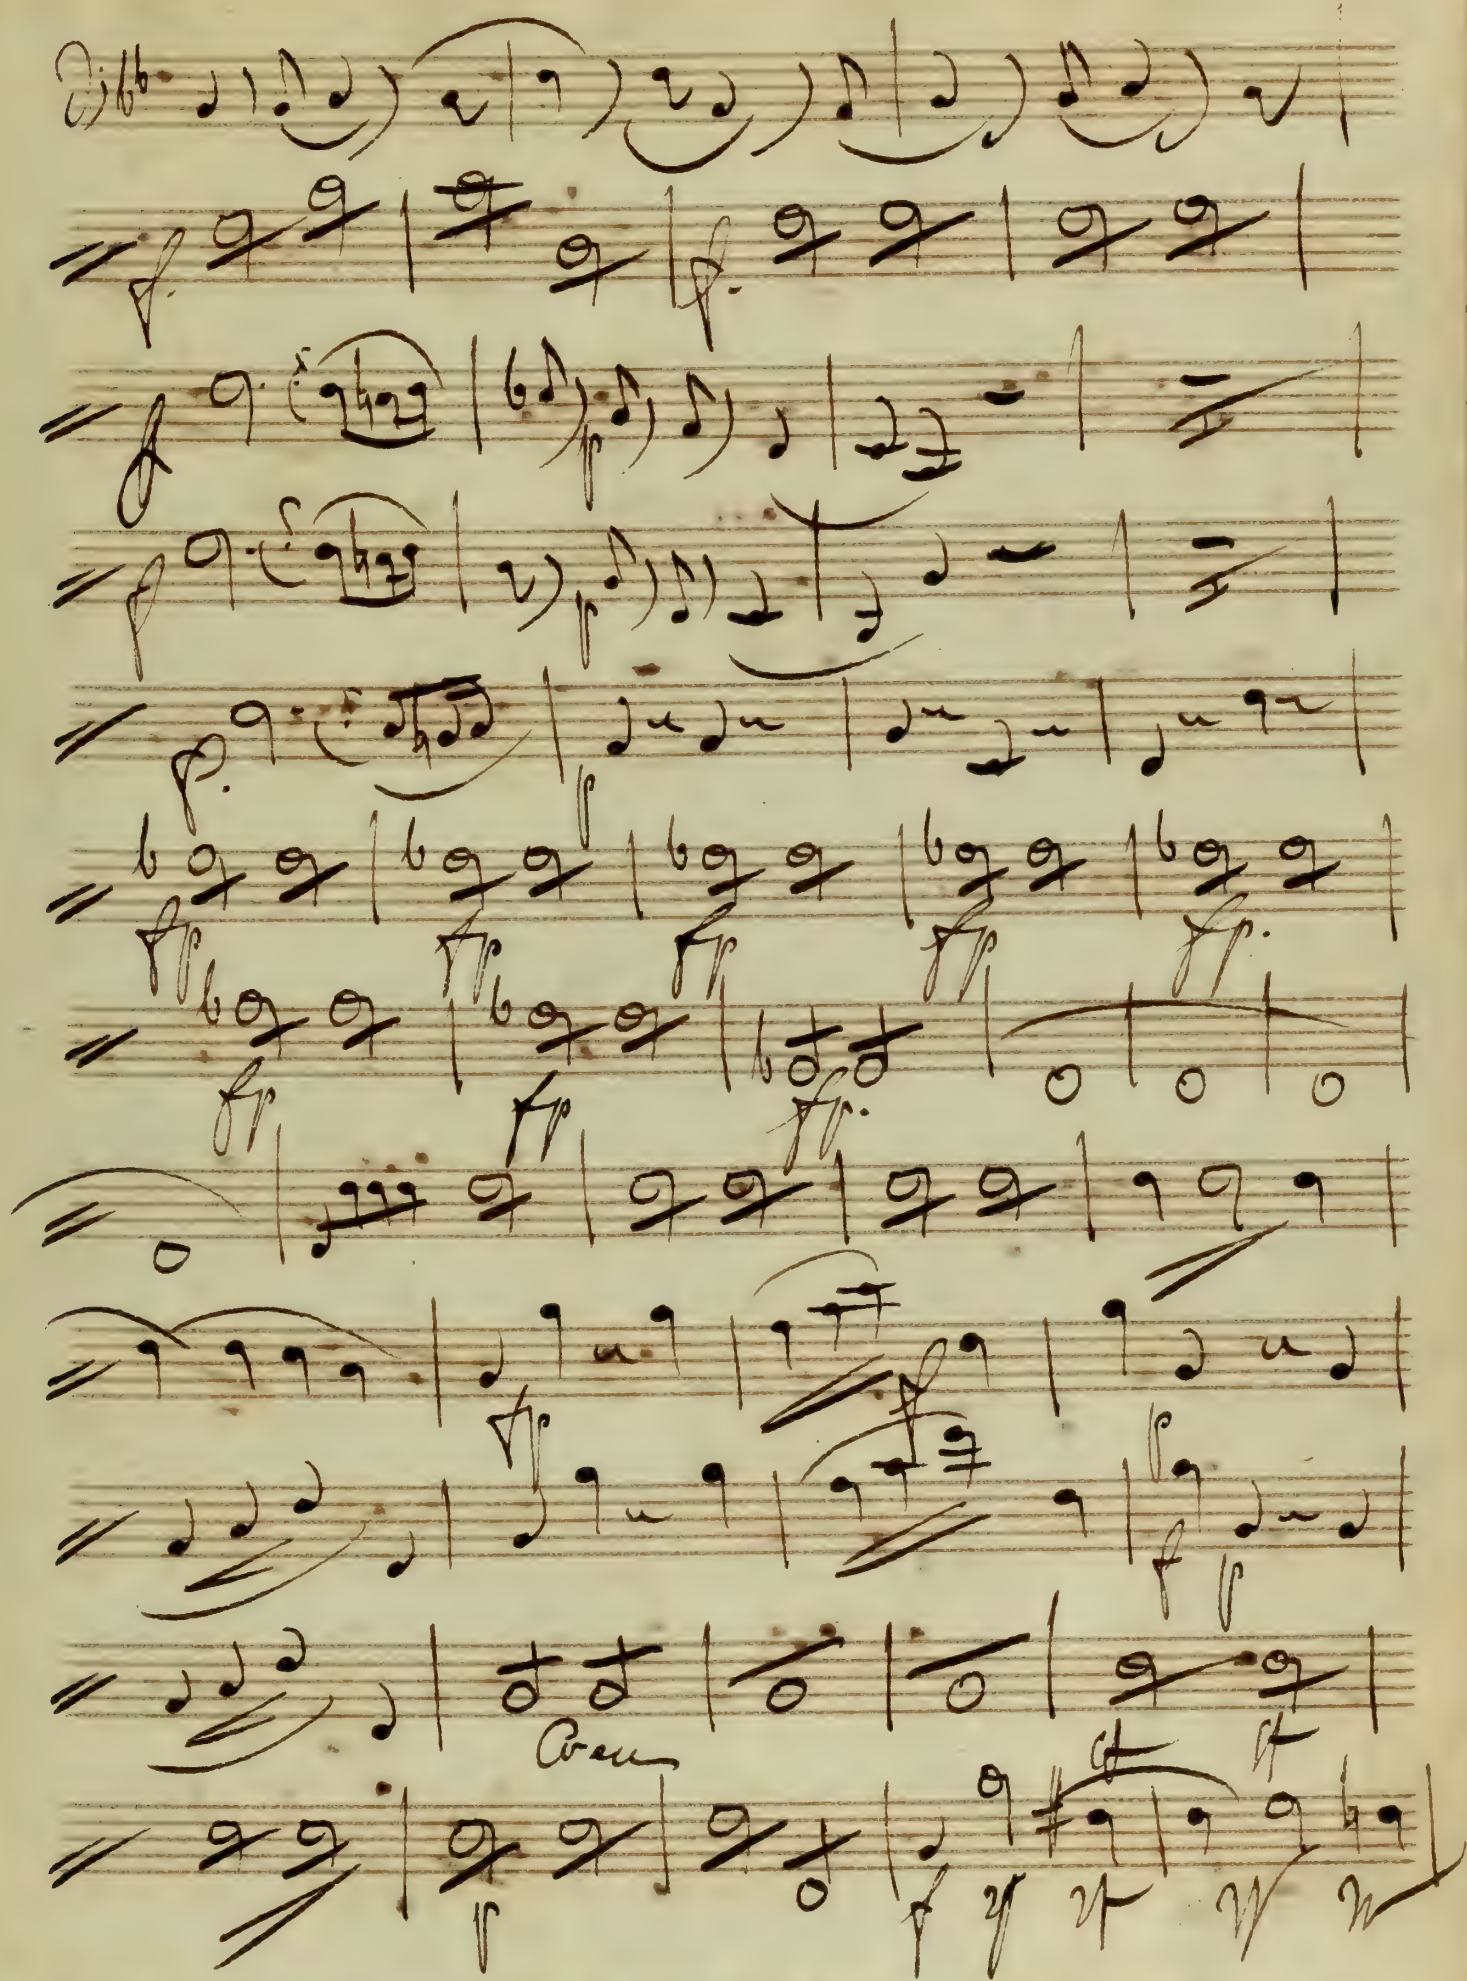 f. f.
f p
f p
f. p
fp fp fp fp fp.
fp fp fp.
fp f
p
f p
Cresc
sf sf
p f sf sf sf sf